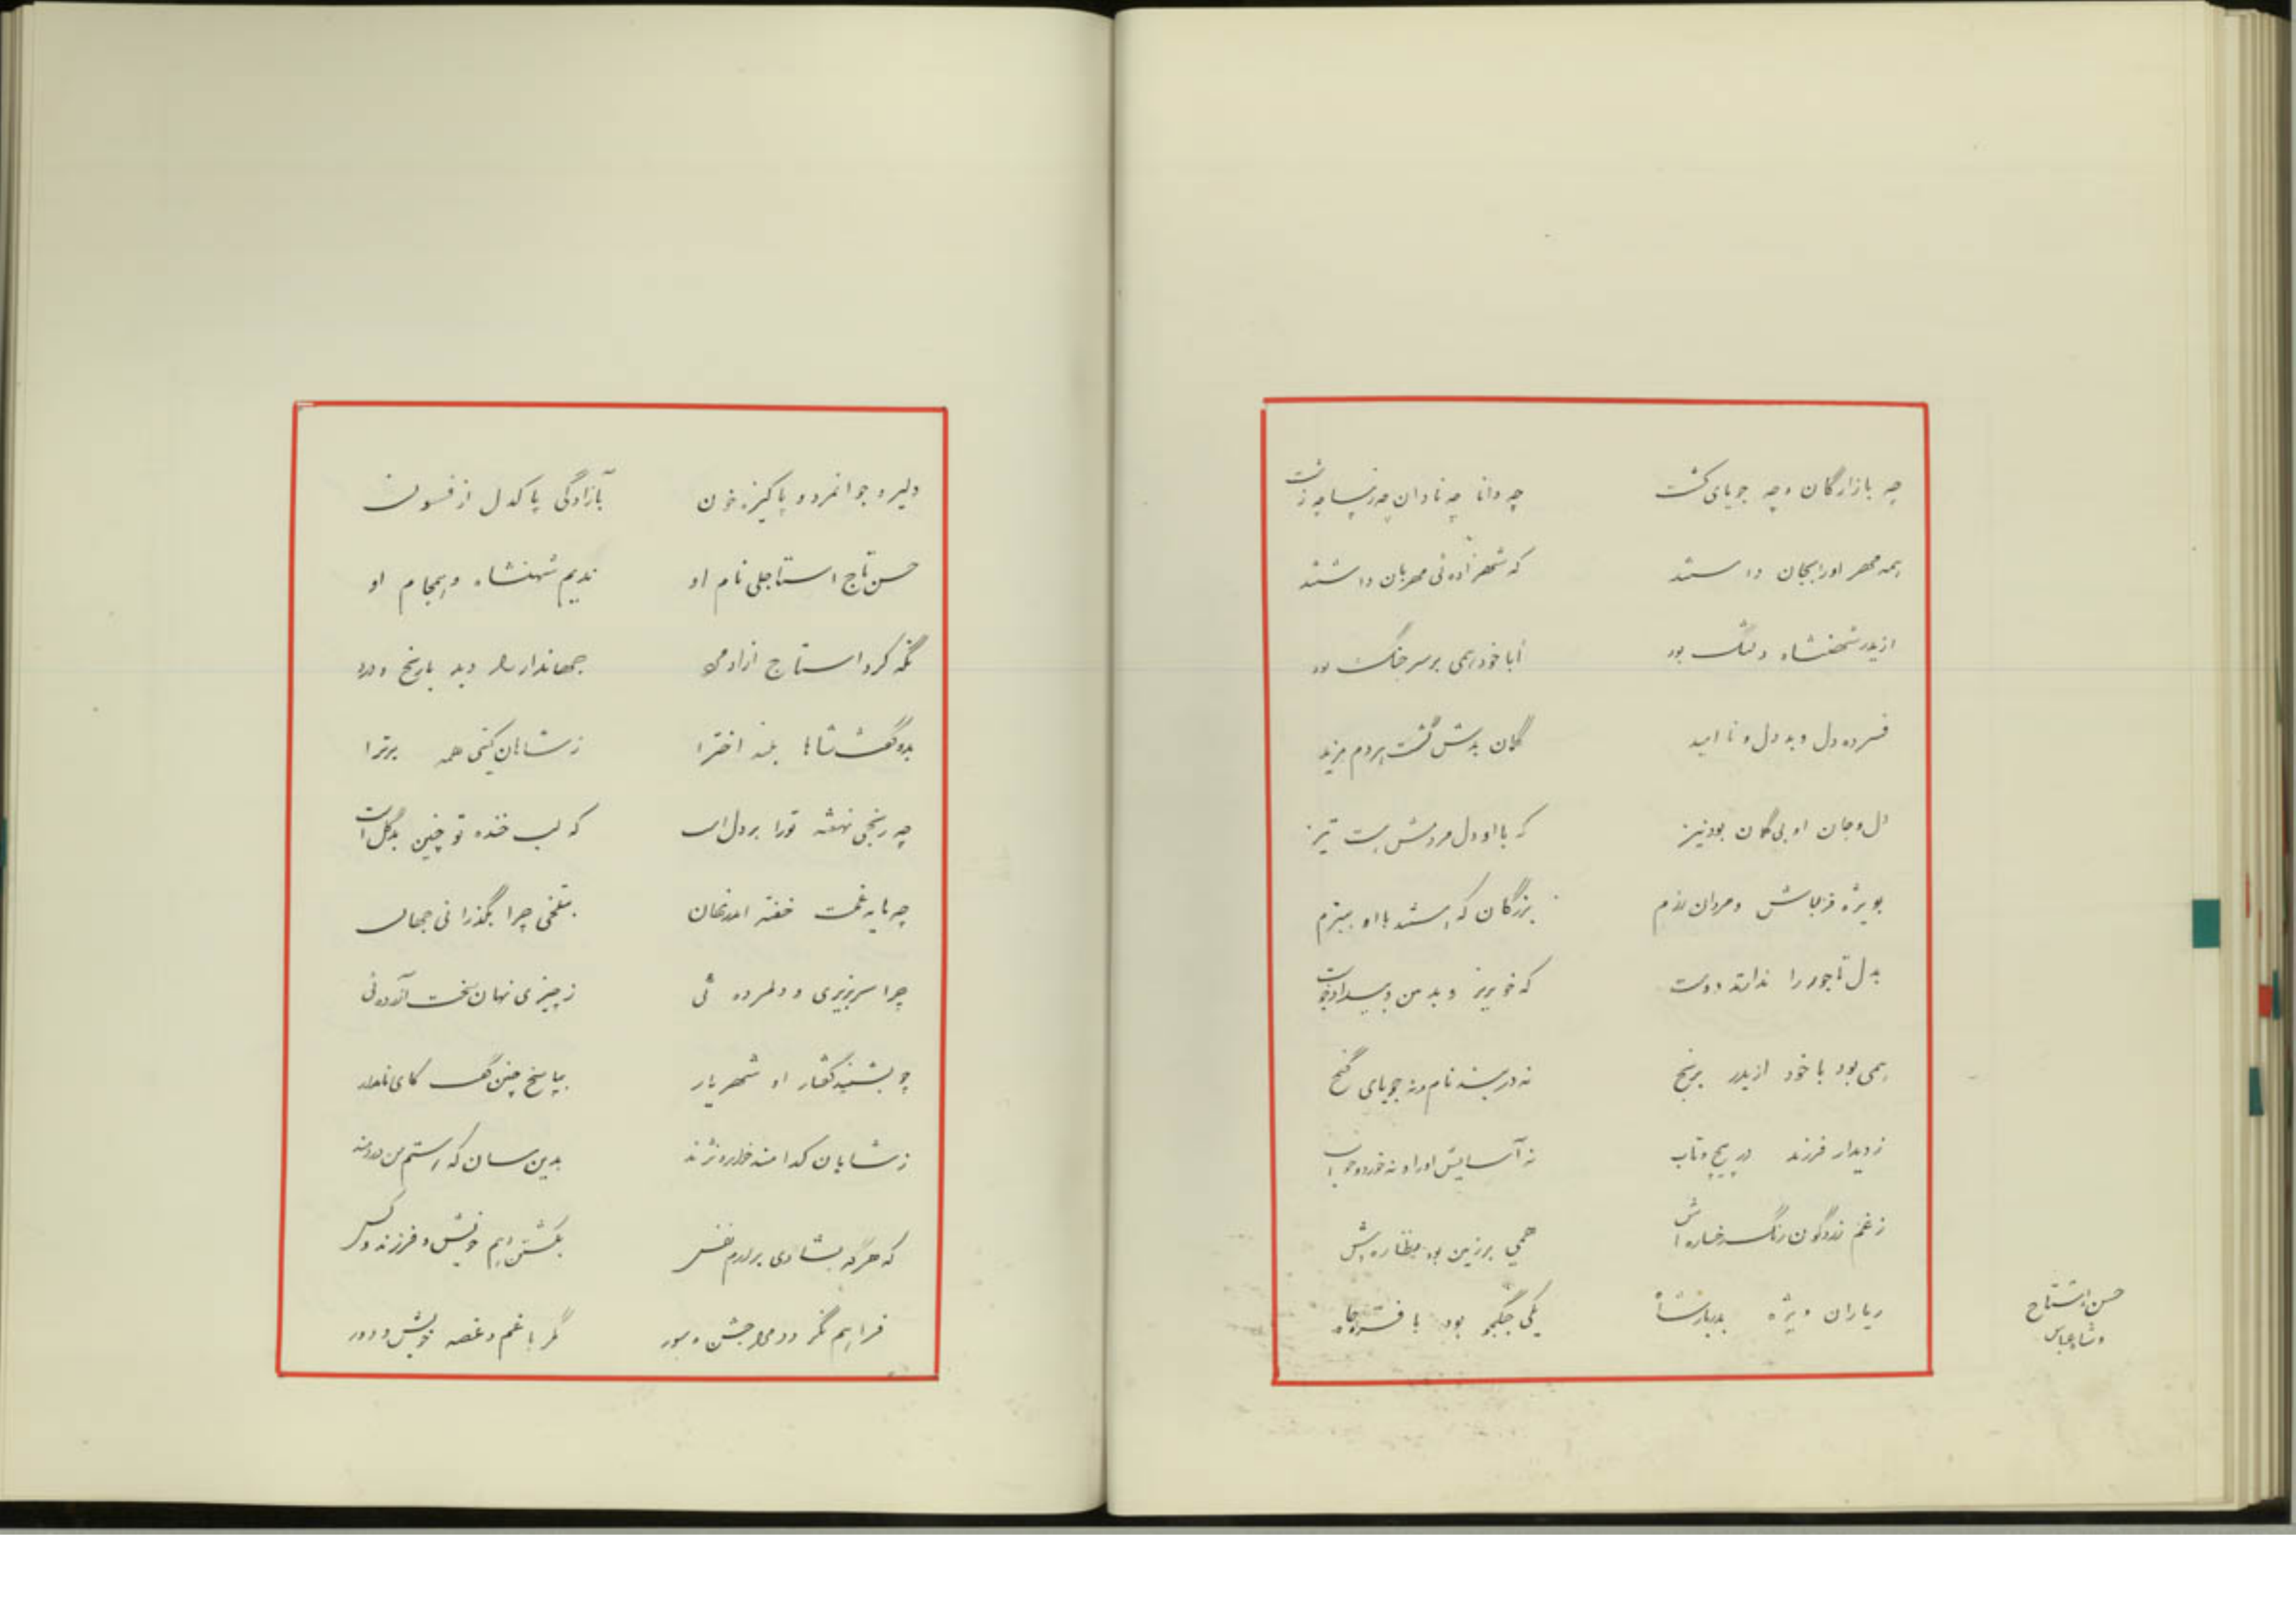 چه بازارگان و چه جویای کشت چه دانا چه نادان چه زیبا چه زشت
همه مهر او را بجان داشتند که شهزاده ئی مهربان داشتند
از یدر شهنشاه دلتنگ بود ابا خود همی بر سر جنگ بود
فسرده دل و بد دل و نا امید گمان بدش گشت هر دم مزید
دل و جان او بی گمان بود نیز که با او دل مردمش بست تیز
بویژه قزلباش و مردان رزم بزرگان که هستند با او ببزم
بدل تاجور را ندارند دوست که خونریز و بدمن و بیدادخوست
همی بود با خود از یدر برنج نه دربند نام و نه جویای گنج
ز دیدار فرزند در پیچ و تاب نه آسایش او را و نه خورد و خواب
ز غم زردگون رنگ رخساره اش همی بر زمین بود نظاره اش
ز یاران ویژه بدربار شاه یکی جنگجو بود با فر و جاه
حسن استاج
و شاه عباس
دلیر و جوانمرد و پاکیزه خون بآزادگی پاکدل از فسون
حسن تاج استاجلی نام او ندیم شهنشاه و همجام او
نگه کرد استاج آزاد مرد جهاندار را دید با رنج و درد
بدو گفت شاها بلند اخترا ز شاهان گیتی همه برترا
چه رنجی نهفته تو را بر دل است که لب خنده تو چنین مشکل است
چه مایه غمت خفته اندر نهان بتلخی چرا بگذرانی جهان
چرا سر بزیری و دلمرده ئی ز چیزی نهان سخت آزرده ئی
چو بشنید گفتار او شهریار بپاسخ چنین گفت کای نامدار
ز شاهان کدامند خوار و نژند بدین سان که هستم من دردمند
که هر گه بشادی برآرم نفس بکشتن دهم خویش و فرزند و کس
فراهم نگردد مرا جشن و سور مگر با غم و غصه خویش و دور